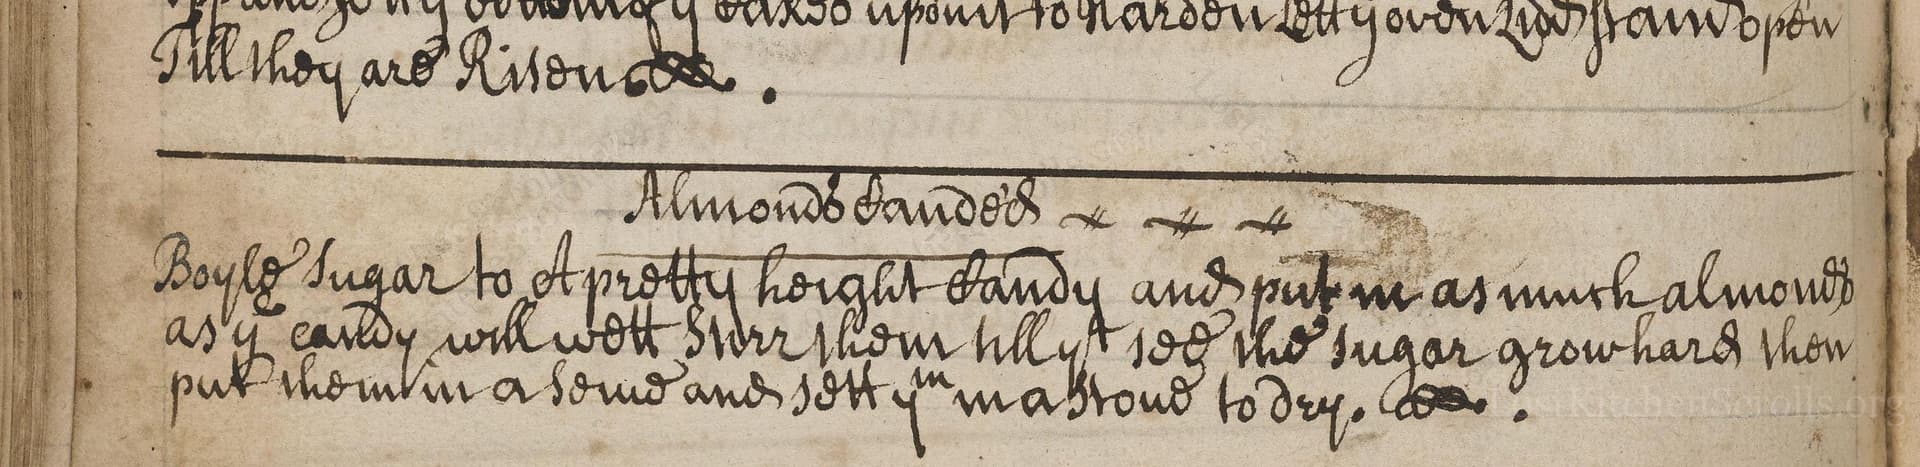 upon it to harden Lett yͤ oven Lidd stand open
Till they are Risen
Almonds Canded
Boyle Sugar to A pretty height Candy and put in as much almonds
as yͤ candy will wett Stirr them till yͭ see the Sugar grow hard then
put them in a Seive and sett yͫ in a Stove to dry.
KitchenScrolls.org